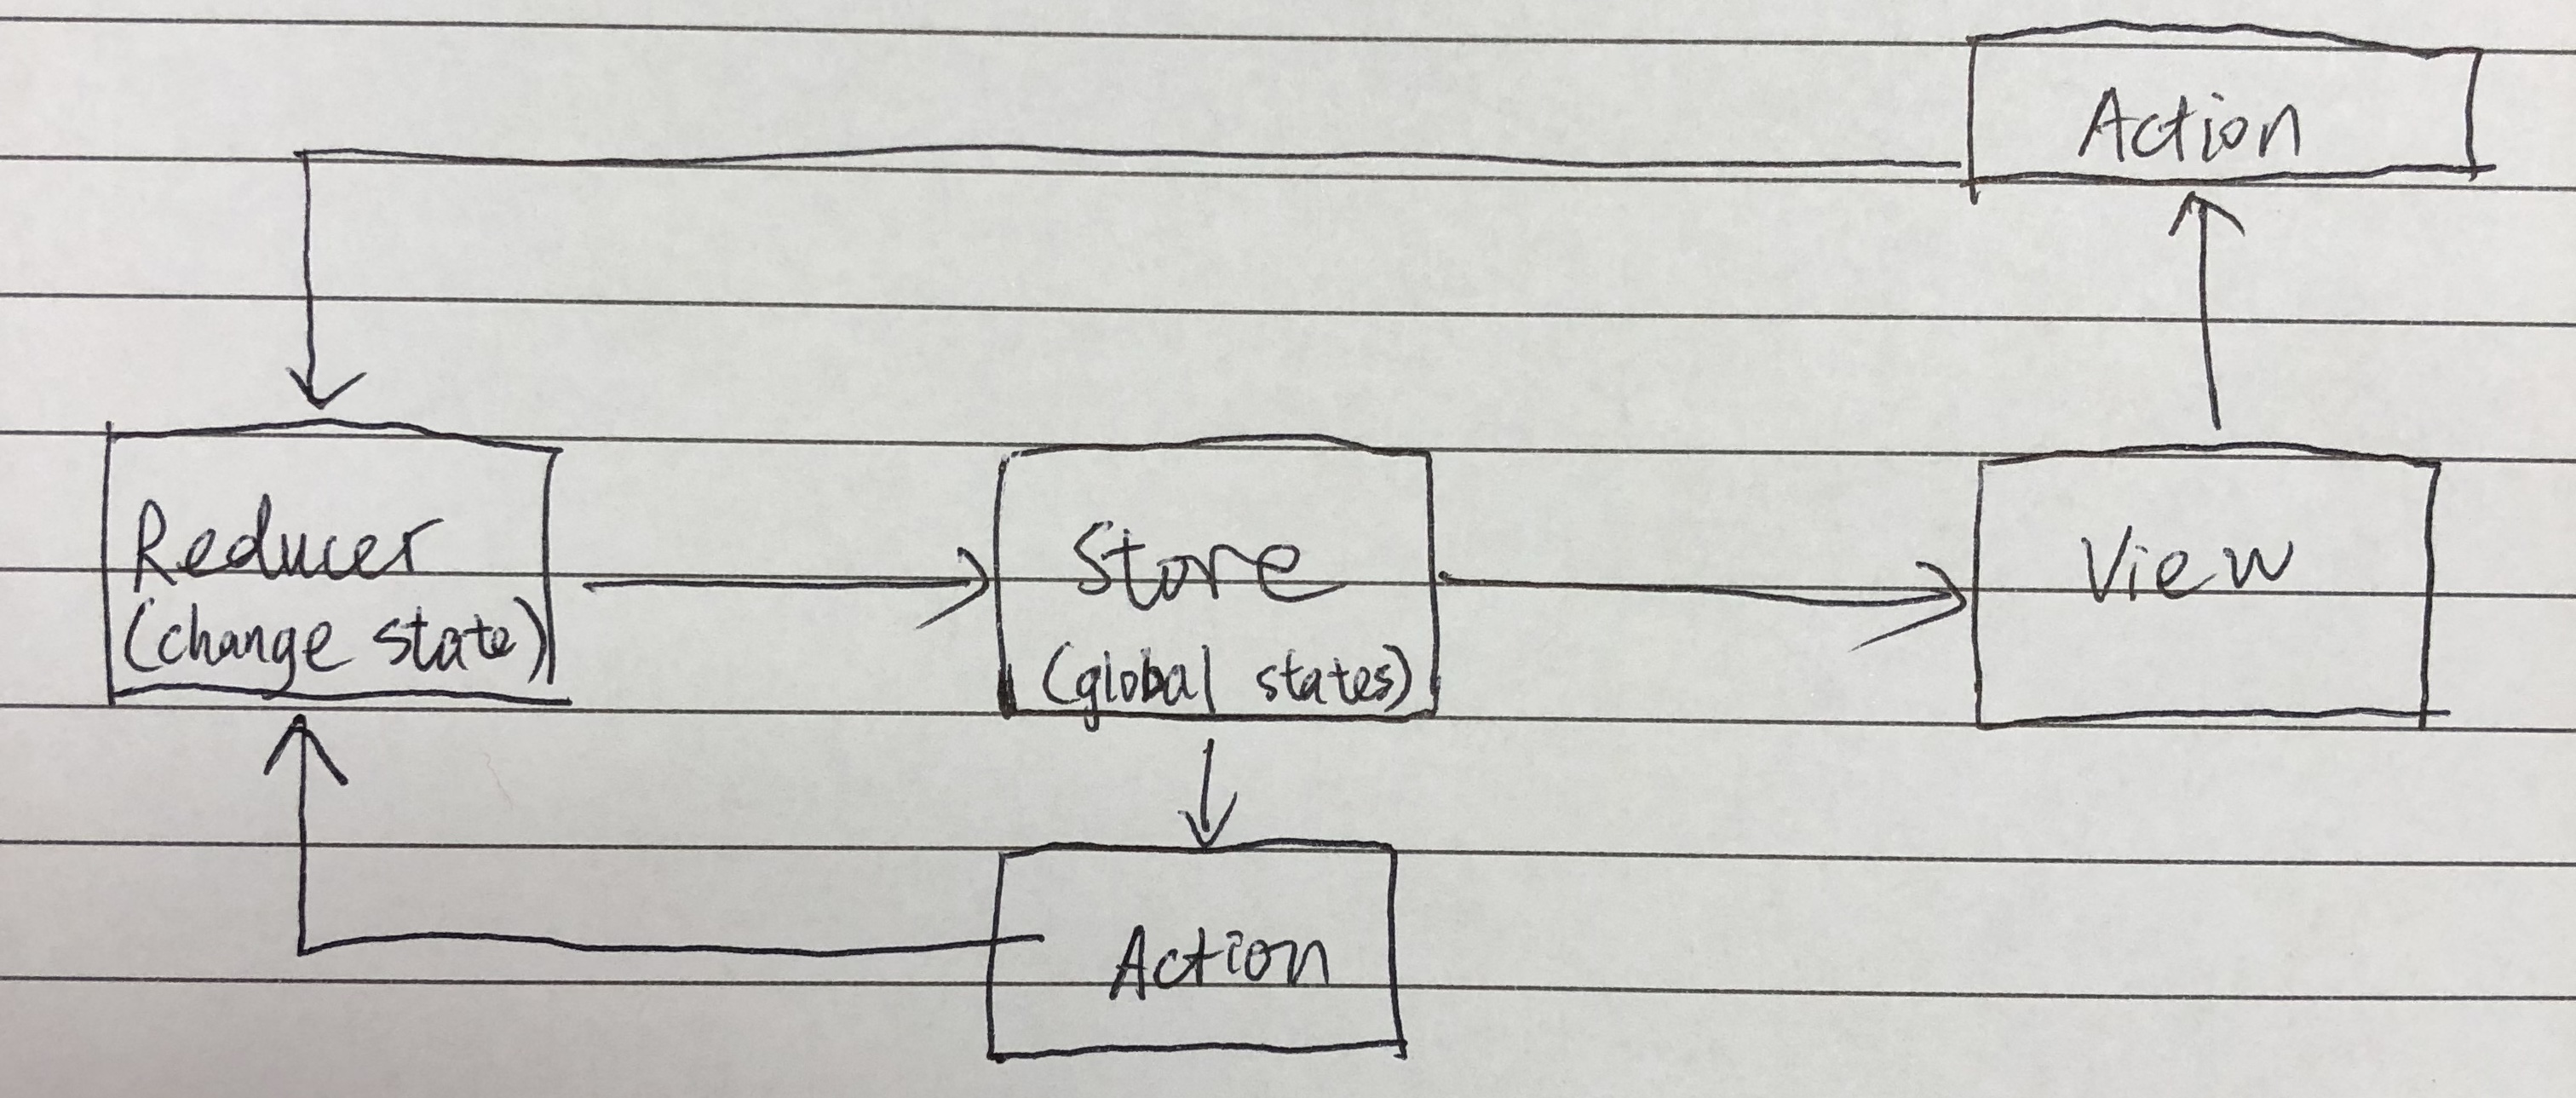 Action
Reducer
(change state)
Store
(global states)
View
Action